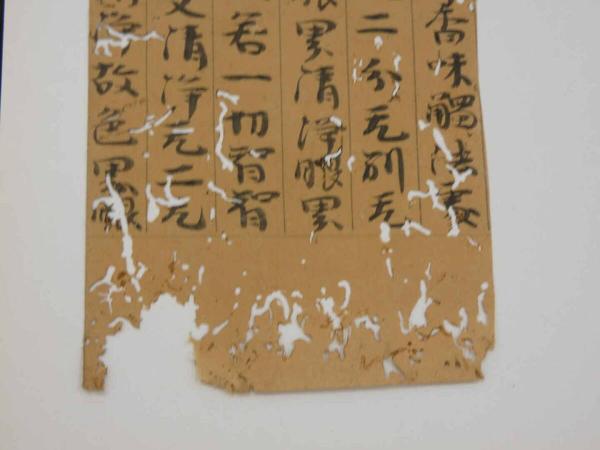 香味觸法處
二分无別无
眼界清淨眼界
若一切智智
清淨无二无
淨故色界眼